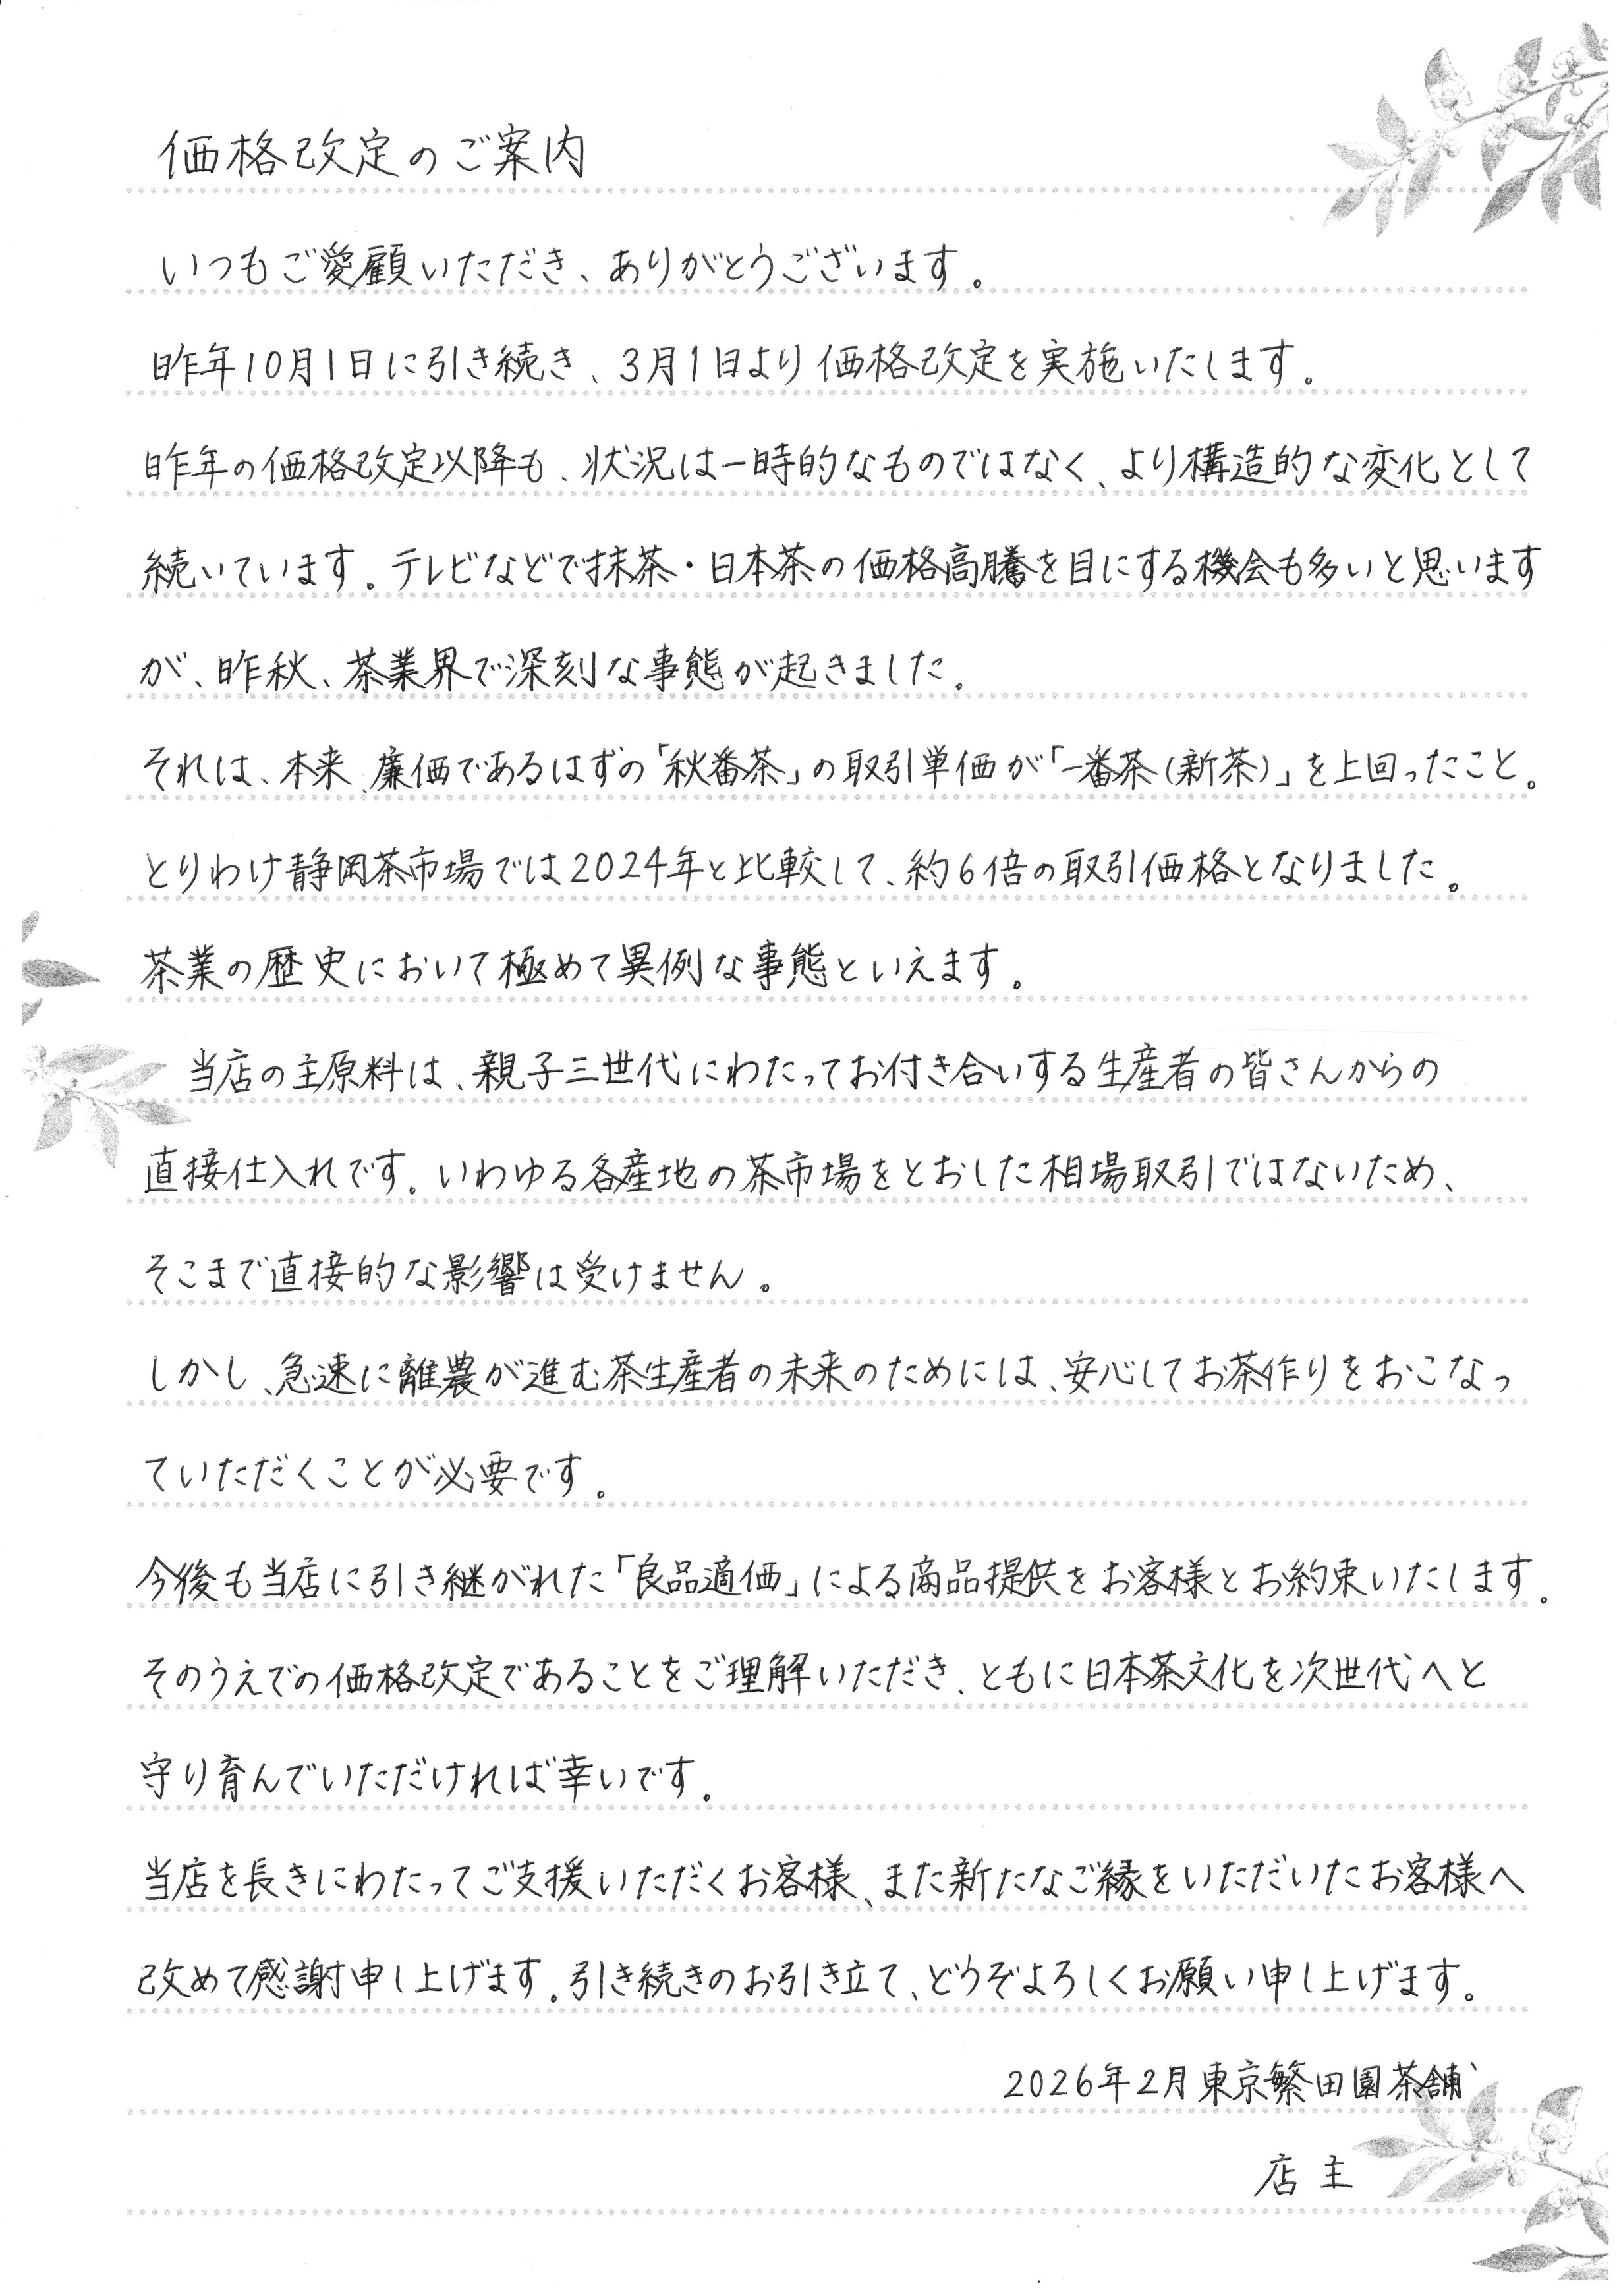 価格改定のご案内
いつもご愛顧いただき、ありがとうございます。
昨年10月1日に引き続き、3月1日より価格改定を実施いたします。
昨年の価格改定以降も、状況は一時的なものではなく、より構造的な変化として
続いています。テレビなどで抹茶・日本茶の価格高騰を目にする機会も多いと思います
が、昨秋、茶業界で深刻な事態が起きました。
それは、本来、廉価であるはずの「秋番茶」の取引単価が「一番茶(新茶)」を上回ったこと。
とりわけ静岡茶市場では2024年と比較して、約6倍の取引価格となりました。
茶業の歴史において極めて異例な事態といえます。
当店の主原料は、親子三世代にわたってお付き合いする生産者の皆さんからの
直接仕入れです。いわゆる各産地の茶市場をとおした相場取引ではないため、
そこまで直接的な影響は受けません。
しかし、急速に離農が進む茶生産者の未来のためには、安心してお茶作りをおこなっ
ていただくことが必要です。
今後も当店に引き継がれた「良品適価」による商品提供をお客様とお約束いたします。
そのうえでの価格改定であることをご理解いただき、ともに日本茶文化を次世代へと
守り育んでいただければ幸いです。
当店を長きにわたってご支援いただくお客様、また新たなご縁をいただいたお客様へ
改めて感謝申し上げます。引き続きのお引き立て、どうぞよろしくお願い申し上げます。
2026年2月東京繁田園茶舗
店主